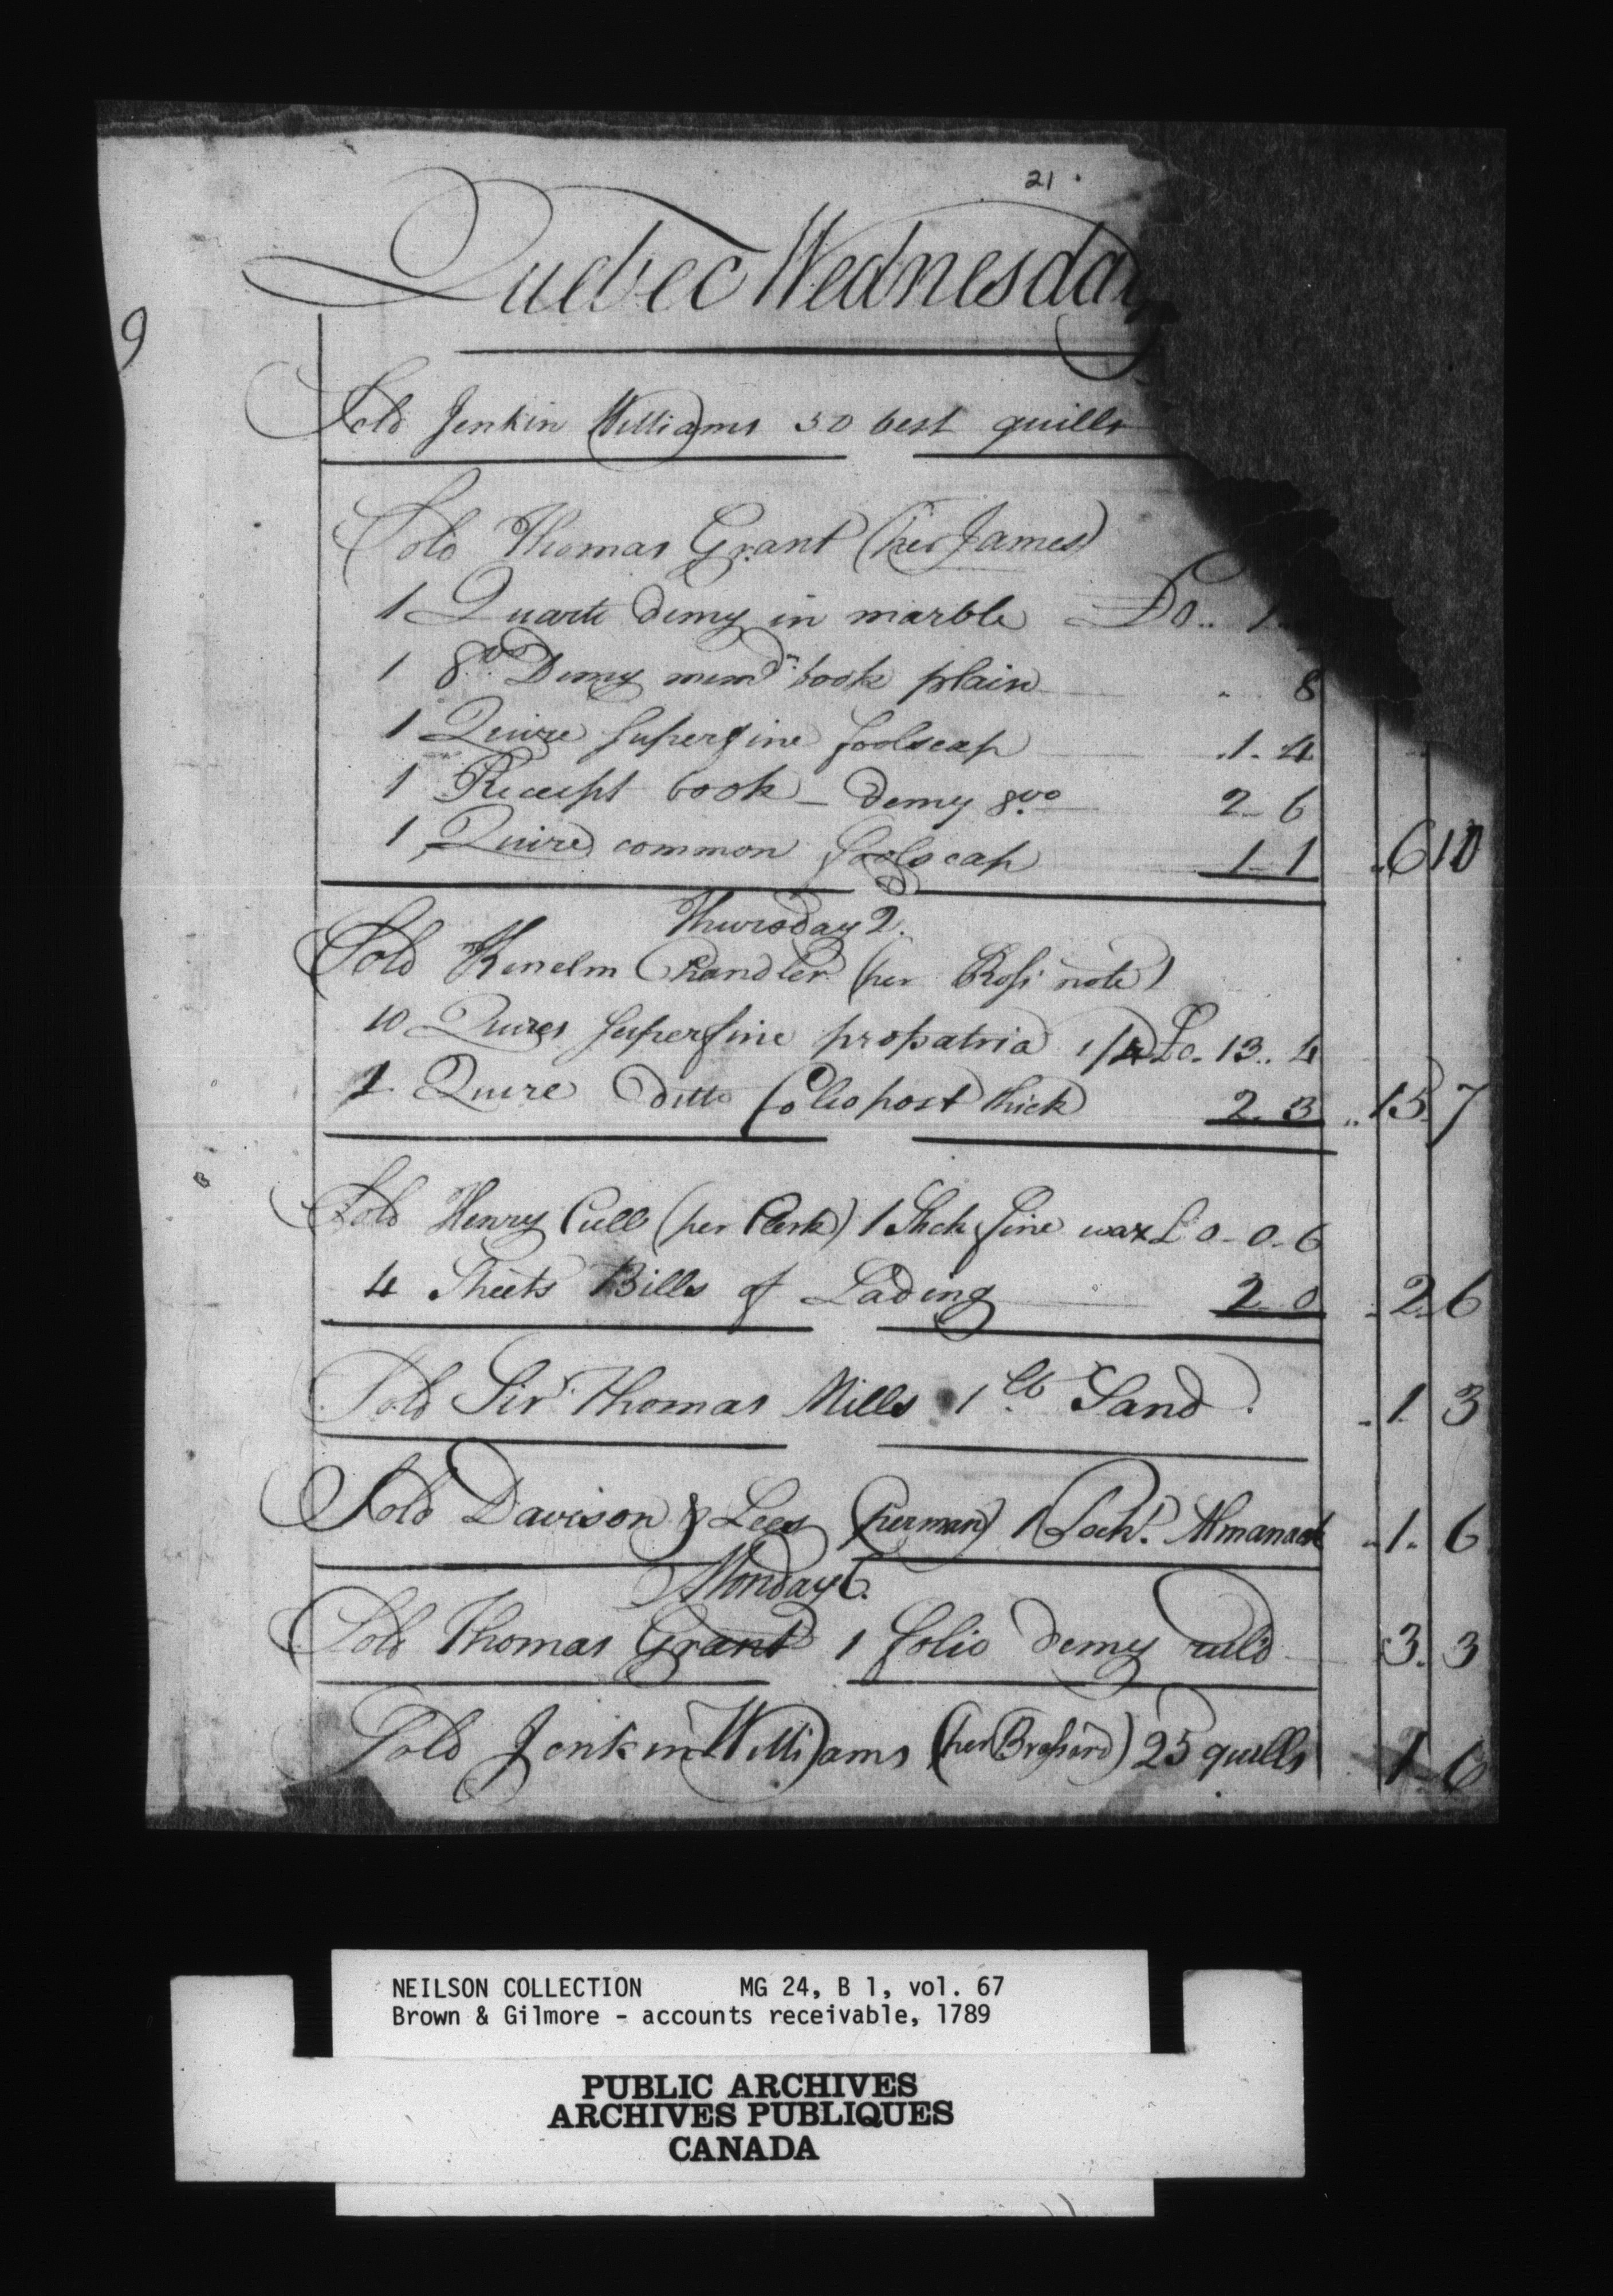 21.
Quebec Wednesday
9
Sold Jenkin Williams 50 best quills
Sold Thomas Grant (per James)
1 Quarto demy in marble £0.. 1..
1 8vo. Demy memdm. book plain " 8
1 Quire superfine foolscap .1-4
1 Receipt book - demy 8vo 2-6
1 Quire common foolscap 1-1 .. 6 10
Thursday 2.
Sold Kenelm Chandler (per Ross' note)
10 Quires superfine propatria 1/4 £0-13..4
1 Quire ditto folio post thick 2-3 .. 15 7
Sold Henry Cull (per Clerk) 1 Stick fine wax £0-0-6
4 Sheets Bills of Lading 2 0 - 2 6
Sold Sir Thomas Mills 1 lb. Sand - 1 3
Sold Davison & Lees (per man) 1 Pocht. Almanack - 1- 6
Monday 6.
Sold Thomas Grant 1 folio demy ruld 3. 3
Sold Jenkin Williams (per) 25 quills 1-6
NEILSON COLLECTION MG 24, B 1, vol. 67
Brown & Gilmore - accounts receivable, 1789
PUBLIC ARCHIVES
ARCHIVES PUBLIQUES
CANADA